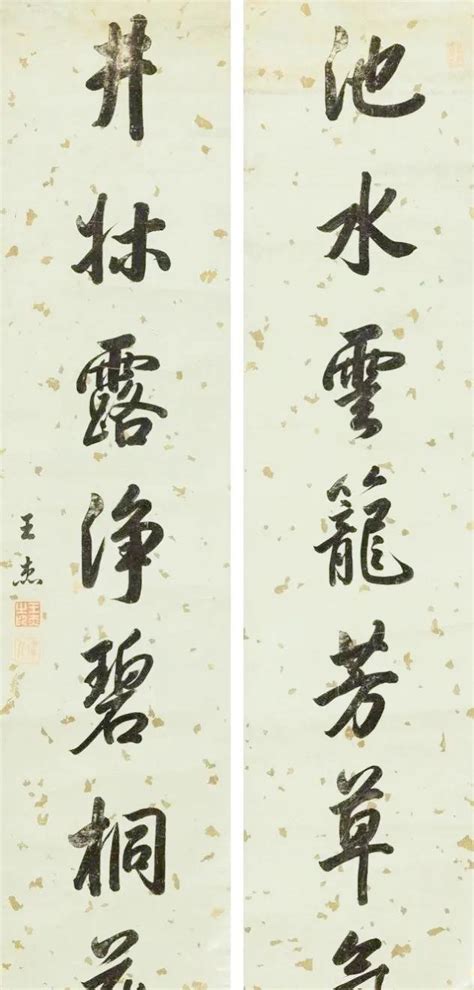 池水雲籠芳草氣
井牀露淨碧桐花
王杰